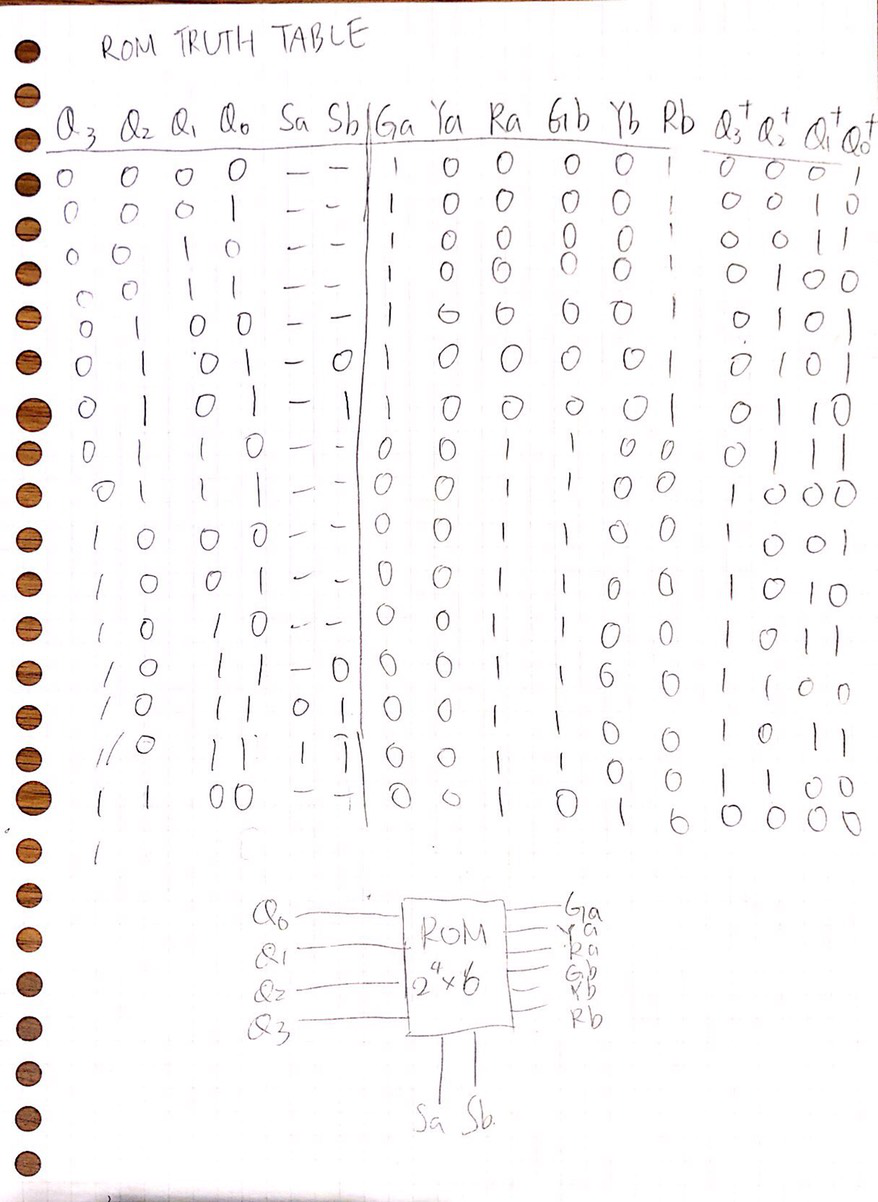 ROM TRUTH TABLE
Q3 Q2 Q1 Q0 Sa Sb Ga Ya Ra Gb Yb Rb Q3+ Q2+ Q1+ Q0+
0 0 0 0 - - 1 0 0 0 0 1 0 0 0 1
0 0 0 1 - - 1 0 0 0 0 1 0 0 1 0
0 0 1 0 - - 1 0 0 0 0 1 0 0 1 1
0 0 1 1 - - 1 0 0 0 0 1 0 1 0 0
0 1 0 0 - - 1 0 0 0 0 1 0 1 0 1
0 1 0 1 - 0 1 0 0 0 0 1 0 1 0 1
0 1 0 1 - 1 1 0 0 0 0 1 0 1 1 0
0 1 1 0 - - 0 0 1 1 0 0 0 1 1 1
0 1 1 1 - - 0 0 1 1 0 0 1 0 0 0
1 0 0 0 - - 0 0 1 1 0 0 1 0 0 1
1 0 0 1 - - 0 0 1 1 0 0 1 0 1 0
1 0 1 0 - - 0 0 1 1 0 0 1 0 1 1
1 0 1 1 - 0 0 0 1 1 0 0 1 1 0 0
1 0 1 1 0 1 0 0 1 1 0 0 1 0 1 1
1 0 1 1 1 1 0 0 1 1 0 0 1 1 0 0
1 1 0 0 - - 0 0 1 0 1 0 0 0 0 0
1
Q0 ROM Ga
Ya
Q1 Ra
Q2 2^4×6 Gb
Yb
Q3 Rb
Sa Sb